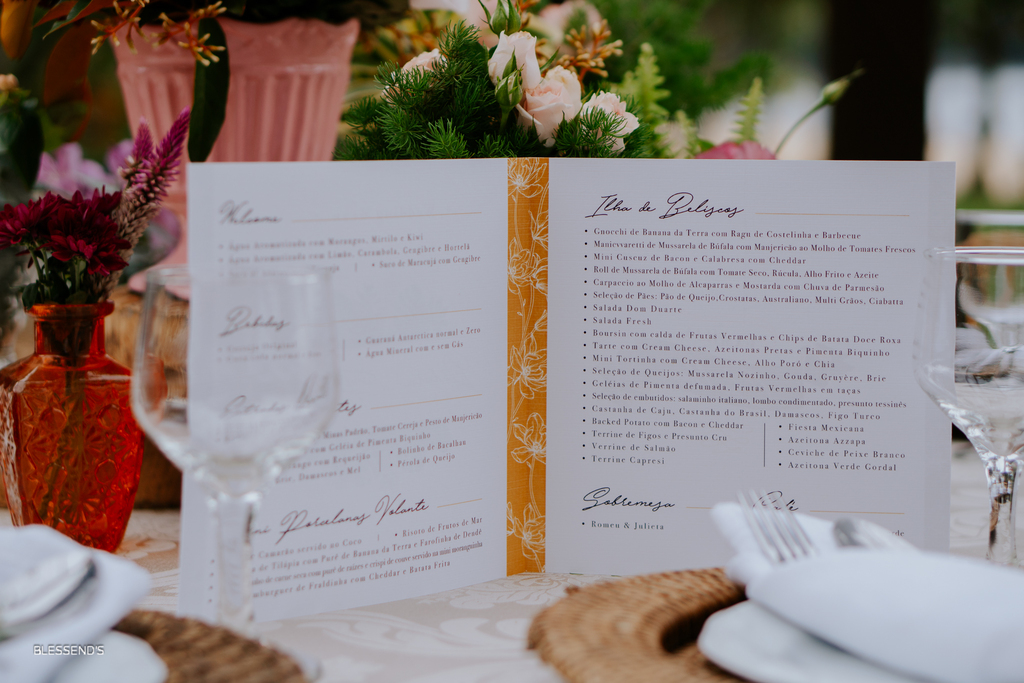 Welcome
• Água Aromatizada com Morangos, Mirtilo e Kiwi
• Água Aromatizada com Limão, Carambola, Gengibre e Hortelã
• Suco de Maracujá com Gengibre
Bebidas
• Guaraná Antarctica normal e Zero
• Água Mineral com e sem Gás
tes
Padrão, Tomate Cereja e Pesto de Manjericão
com Geléia de Pimenta Biquinho
ango com Requeijão
• Bolinho de Bacalhau
Brie, Damascos e Mel
• Pérola de Queijo
ini Porcelanas Volante
Camarão servido no Coco
• Risoto de Frutos de Mar
de Tilápia com Purê de Banana da Terra e Farofinha de Dendê
de carne seca com purê de raízes e crispi de couve servido na
mburguer de Fraldinha com Cheddar e Batata Frita
Ilha de Beliscos
• Gnocchi de Banana da Terra com Ragu de Costelinha e Barbecue
• Manicvaretti de Mussarela de Búfala com Manjericão ao Molho de Tomates Frescos
• Mini Cuscuz de Bacon e Calabresa com Cheddar
• Roll de Mussarela de Búfala com Tomate Seco, Rúcula, Alho Frito e Azeite
• Carpaccio ao Molho de Alcaparras e Mostarda com Chuva de Parmesão
• Seleção de Pães: Pão de Queijo,Crostatas, Australiano, Multi Grãos, Ciabatta
• Salada Dom Duarte
• Salada Fresh
• Boursin com calda de Frutas Vermelhas e Chips de Batata Doce Roxa
• Tarte com Cream Cheese, Azeitonas Pretas e Pimenta Biquinho
• Mini Tortinha com Cream Cheese, Alho Poró e Chia
• Seleção de Queijos: Mussarela Nozinho, Gouda, Gruyère, Brie
• Geléias de Pimenta defumada, Frutas Vermelhas em taças
• Seleção de embutidos: salaminho italiano, lombo condimentado, presunto tessinês
• Castanha de Caju, Castanha do Brasil, Damascos, Figo Turco
• Backed Potato com Bacon e Cheddar
• Terrine de Figos e Presunto Cru
• Terrine de Salmão
• Terrine Capresi
• Fiesta Mexicana
• Azeitona Azzapa
• Ceviche de Peixe Branco
• Azeitona Verde Gordal
Sobremesa
• Romeu & Julieta
BLESSEND'S